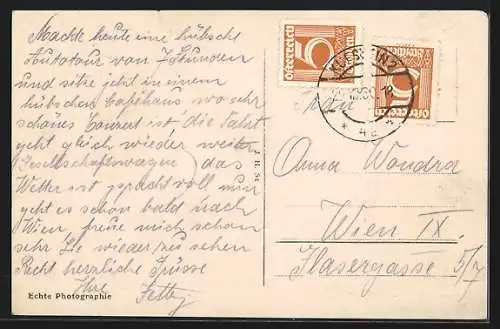 Machte heute eine hübsche
Autotour von 7 Stunden
und sitze jetzt in einem
hübschen Cafehaus wo sehr
schönes Conzert ist die Fahrt
geht gleich wieder weiter
(Gesellschaftswagen) das
Wetter ist prachtvoll nun
geht es schon bald nach
Wien, freue mich schon
sehr Sie wieder zu sehen
Recht herzliche Grüsse
Ihre
Echte Photographie
5
Österreich
5
Österreich
KUFSTEIN 2
* 4a *
Anna Wondra
Wien IX.
Hasergasse 5/7